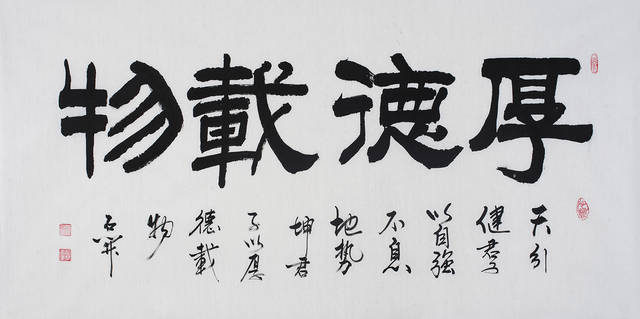 厚德載物
天行
健君子
以自強
不息
地势
坤君
子以厚
德載
物